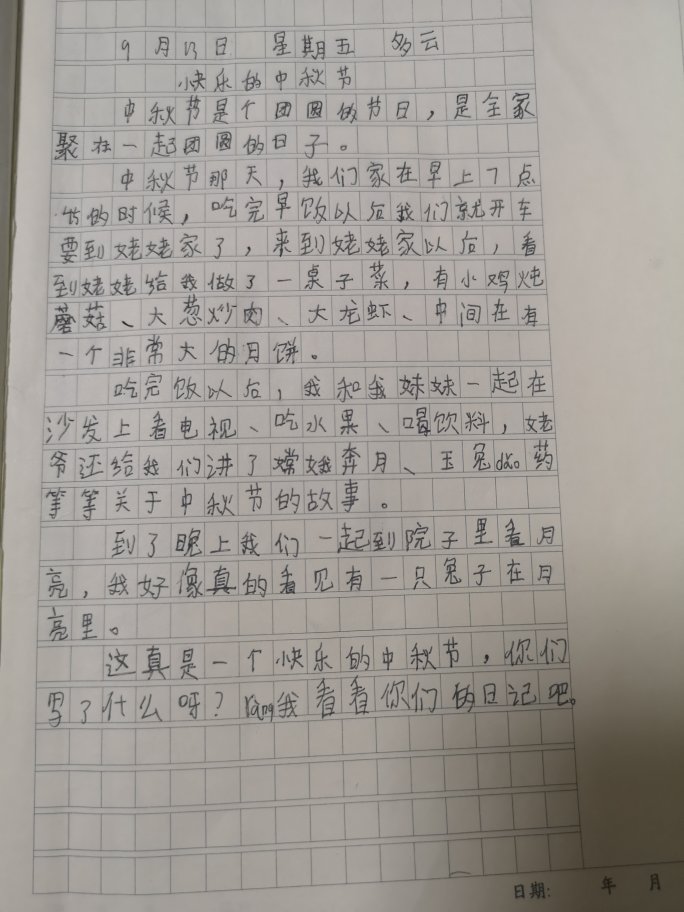 9月13日 星期五 多云
快乐的中秋节
中秋节是个团圆的节日，是全家
聚在一起团圆的日子。
中秋节那天，我们家在早上7点
的时候，吃完早饭以后我们就开车
要到姥姥家了，来到姥姥家以后，看
到姥姥给我做了一桌子菜，有小鸡炖
蘑菇、大葱炒肉、大龙虾、中间在有
一个非常大的月饼。
吃完饭以后，我和我妹妹一起在
沙发上看电视、吃水果、喝饮料，姥
爷还给我们讲了嫦娥奔月、玉兔dǎo药
等等关于中秋节的故事。
到了晚上我们一起到院子里看月
亮，我好像真的看见有一只兔子在月
亮里。
这真是一个快乐的中秋节，你们
写了什么呀？ràng我看看你们的日记吧。
日期: 年 月